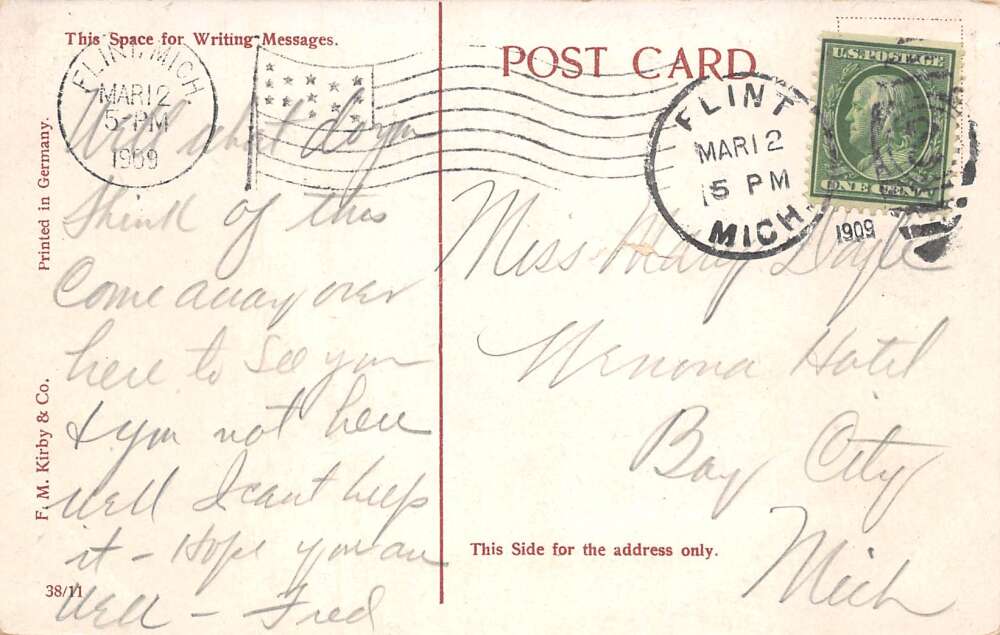 This Space for Writing Messages.
POST CARD
FLINT, MICH.
MAR 12
5 PM
1909
FLINT
MAR 12
5 PM
MICH.
1909
U.S. POSTAGE
ONE CENT
Well what do you
think of this
Come away over
here to see you
& you not here
Well I cant help
it - Hope you are
Well - Fred
Miss Mary Doyle
Wenona Hotel
Bay City
Mich
This Side for the address only.
Printed in Germany.
F. M. Kirby & Co.
38/11